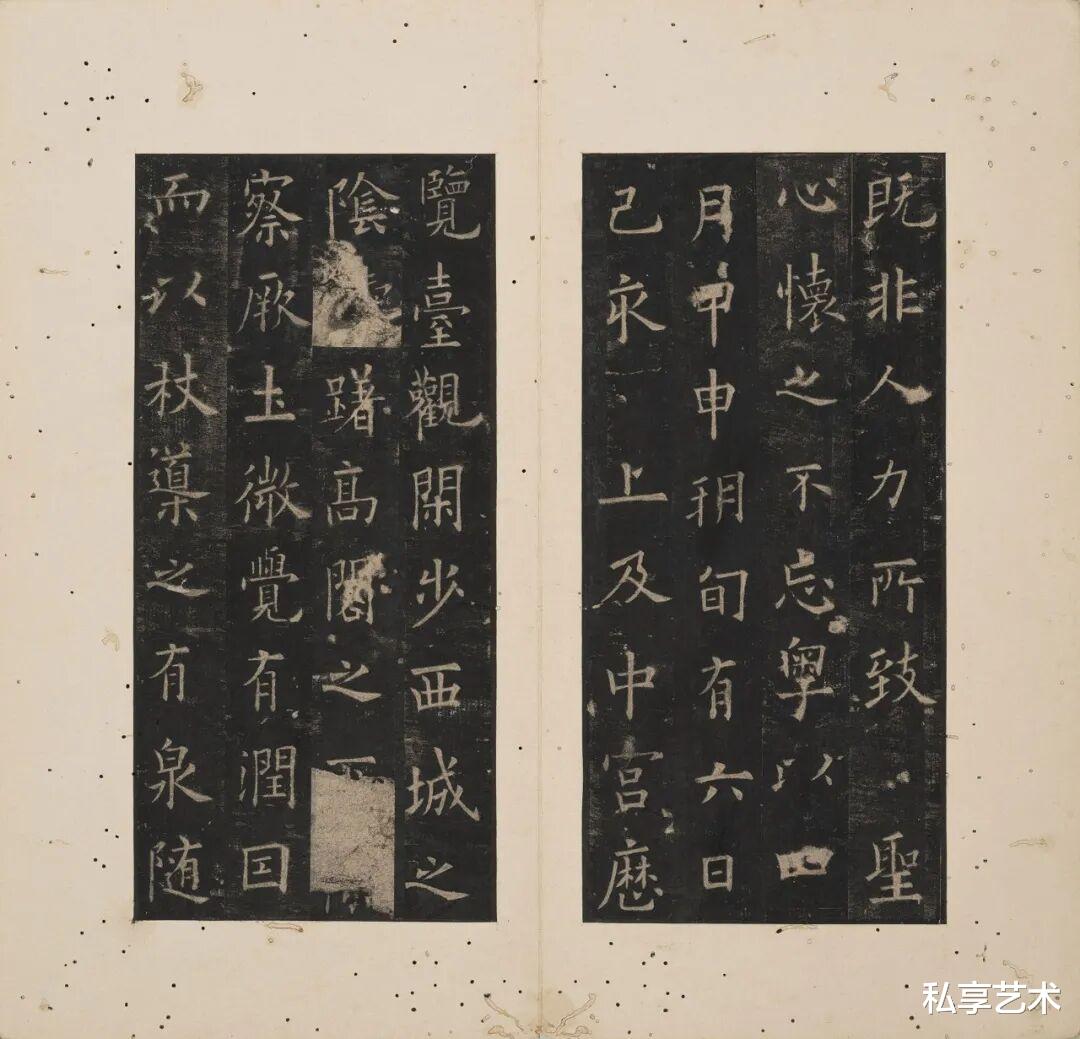 既非人力所致聖
心懷之不忘粤以四
月甲申朔旬有六日
己亥上及中宮歷
覽臺觀閑步西城之
陰躇高閣之
察厥土微覺有潤因
而以杖導之有泉随
私享艺术